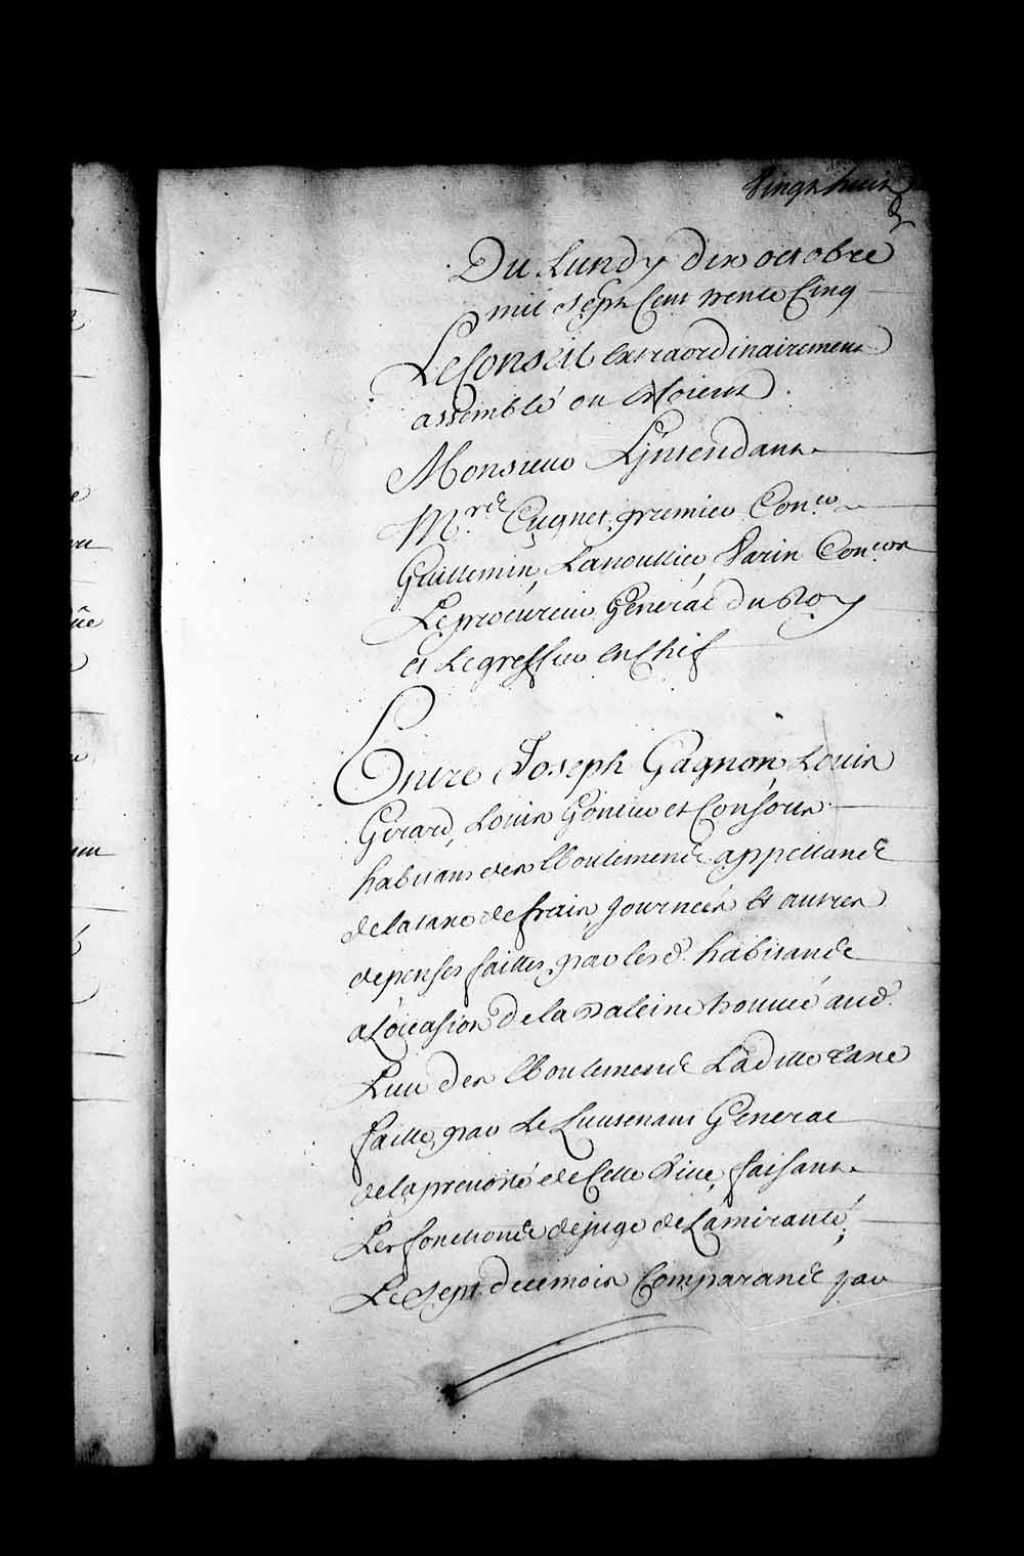 Vingt huit
Du Lundy dix octobre
mil sept Cent trente Cinq
Le Conseil extraordinairement
assemblé ou Estoient
Monsieur L'jntendant
Mrs. Cugnet premier Coner
Guillemin, Lanoullier, Varin Coners
Le procureur General du Roy
et Le greffier en Chef
Entre Joseph Gagnon, Louis
Gérard, Louis Gontier et Consors
habitans des Eboulements appellants
de la taxe de frais, journées et autres
depenses faittes par lesd. habitants
a L'occasion de la Baleine trouvée aud.
Lieu des Eboulements Laditte taxe
faitte par Le Lieutenant General
de la prevosté de Cette Ville, faisant
Les fonctions de juge de L'amirauté,
Le sept de ce mois Comparants par
ue